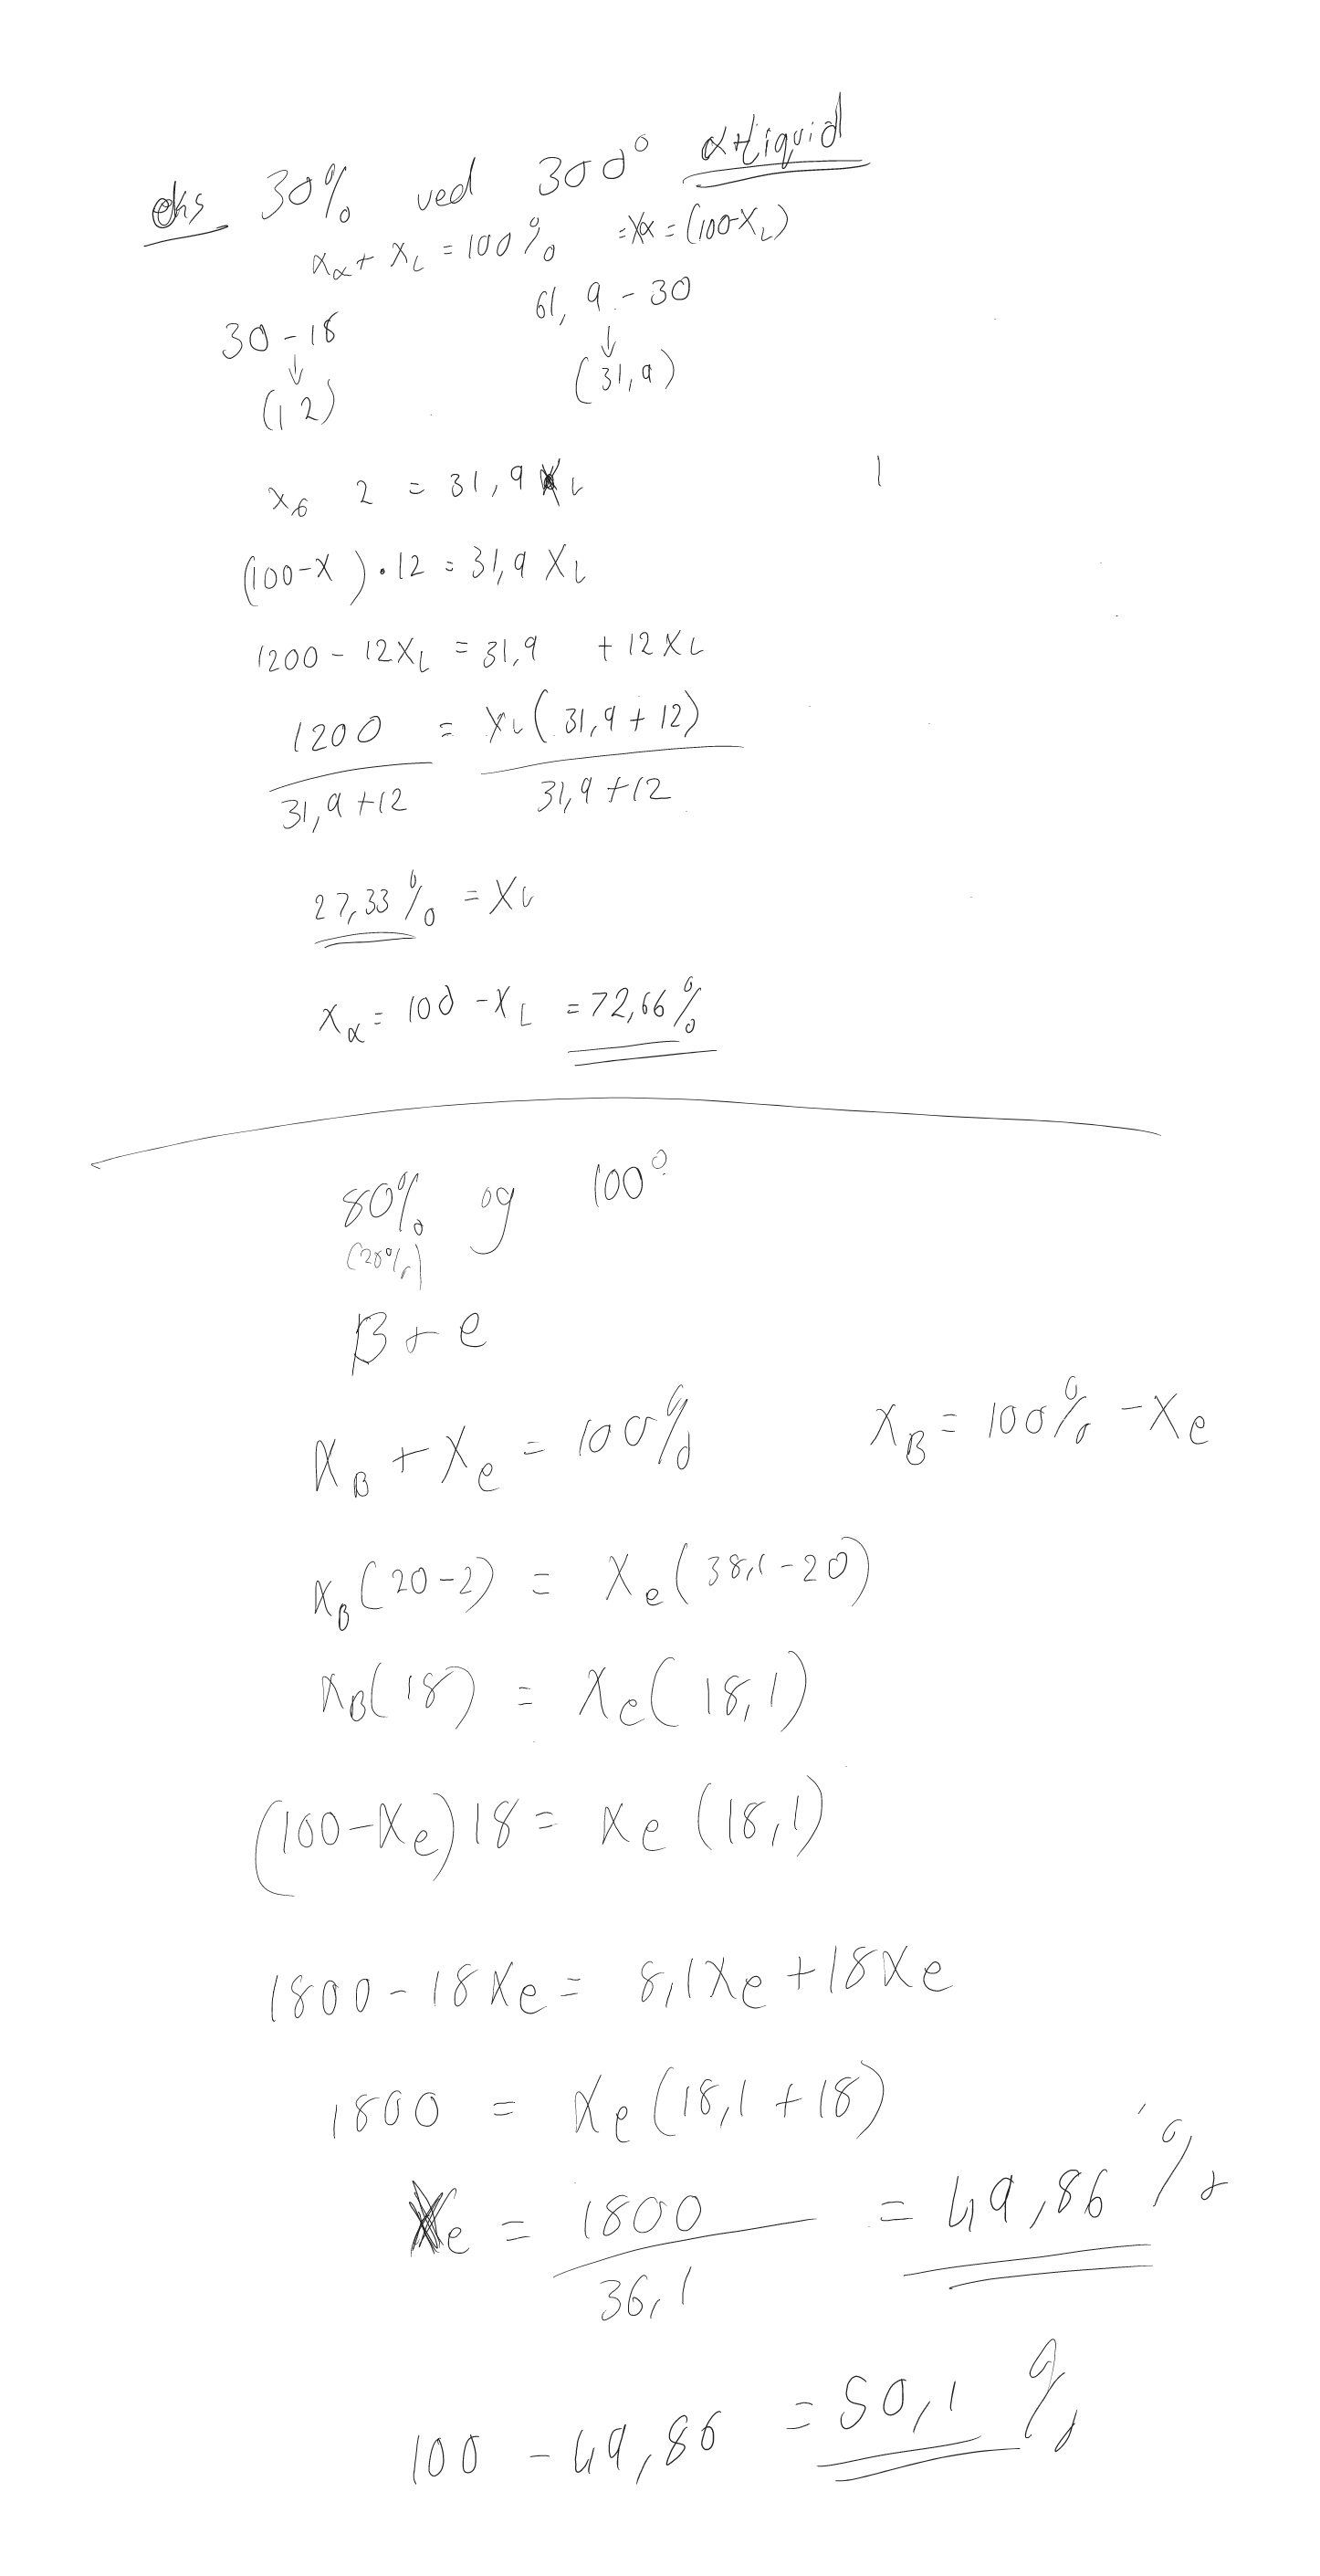 eks 30% ved 300° α+liquid
xα + xL = 100% =xα = (100-XL)
30-18 61,9-30
↓ ↓
(12) (31,9)
2 = 31,9 XL
(100-X ) · 12 = 31,9 XL
1200 - 12XL = 31,9 + 12XL
1200 = XL(31,9+12)
31,9+12 31,9+12
27,33% = XL
Xα = 100 - XL = 72,66%
80% og 100°
(20%)
B+e
XB + Xe = 100% XB = 100% - Xe
XB(20-2) = Xe(38,1-20)
XB(18) = Xe(18,1)
(100-Xe)18 = Xe(18,1)
1800-18Xe = 8,1Xe+18Xe
1800 = Xe(18,1+18)
Xe = 1800 = 49,86%
36,1
100 - 49,86 = 50,1%